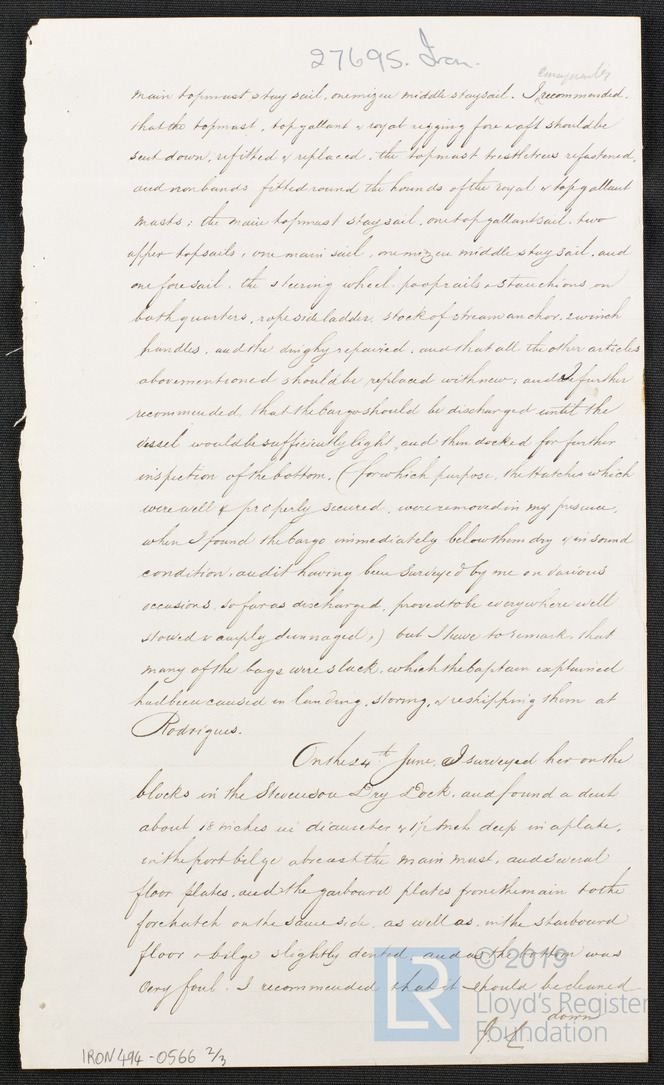 27695. Iron.
main topmast stay sail, one mizen middle staysail. I recommended,
that the topmast, topgallant & royal rigging fore & aft should be
sent down, refitted & replaced, the topmast trestletrees refastened,
and iron bands fitted round the hounds of the royal & topgallant
masts; the main topmast staysail, one topgallantsail, two
upper topsails, one main sail, one mizen middle stay sail, and
one fore sail, the steering wheel, poop rails & stanchions on
both quarters, rope side ladder, stock of stream anchor, 2 winch
handles, and the dinghy repaired, and that all the other articles
abovementioned should be replaced with new; and I further
recommended, that the Cargo should be discharged until the
vessel would be sufficiently light, and then docked for further
inspection of the bottom. (for which purpose, the Hatches which
were well & properly secured, were removed in my presence,
when I found the Cargo immediately below them dry & in sound
condition, and it having been Surveyed by me on various
occasions, so far as discharged, proved to be everywhere well
stowed & amply dunnaged,) but I have to remark, that
many of the bags were slack, which the Captain explained
had been caused in landing, storing, & reshipping them at
Rodrigues.
On the 24th June, I surveyed her on the
blocks in the Stevenson Dry Dock, and found a dent
about 18 inches in diameter & 1 1/2 Inch deep in a plate,
in the port bilge abreast the main mast, and several
floor plates, and the garboard plates from the main to the
forehatch on the same side, as well as, in the starboard
floor & bilge slightly dented, and as the bottom was
very foul, I recommended that it should be cleaned
down
© 2019
LR
Lloyd's Register
Foundation
IRON494-0566 2/3